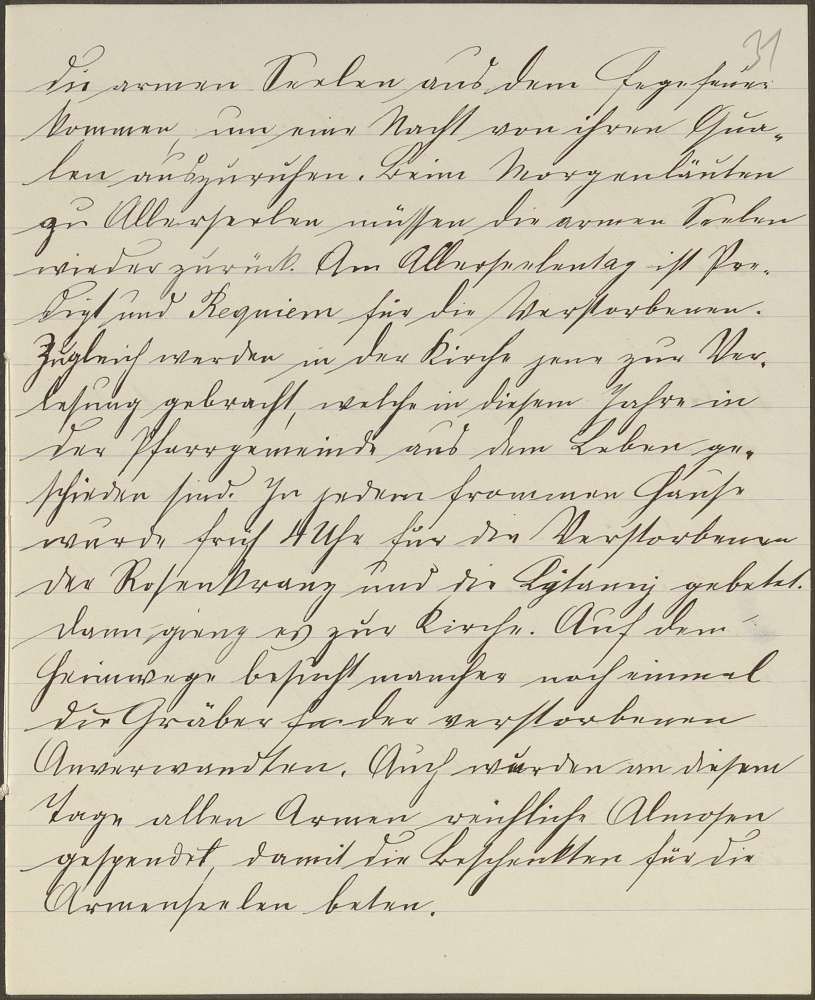 31
die armen Seelen aus dem Fegefeuer
kommen, um eine Nacht von ihren Qua-
len auszuruhen. Beim Morgenläuten
zu Allerseelen müssen die armen Seelen
wieder zurück. Am Allerseelentag ist Pre-
digt und Requiem für die Verstorbenen.
Zugleich werden in der Kirche jene zur Ver-
lesung gebracht, welche in diesem Jahre in
der Pfarrgemeinde aus dem Leben ge-
schieden sind. In jedem frommen Hause
wurde früh 4 Uhr für die Verstorbenen
der Rosenkranz und die Lytaney gebetet.
Dann gieng es zur Kirche. Auf dem
Heimwege besucht mancher noch einmal
die Gräber der verstorbenen
Anverwandten. Auch wurden an diesem
Tage allen Armen reichliche Almosen
gespendet, damit die Beschenkten für die
Armenseelen beten.